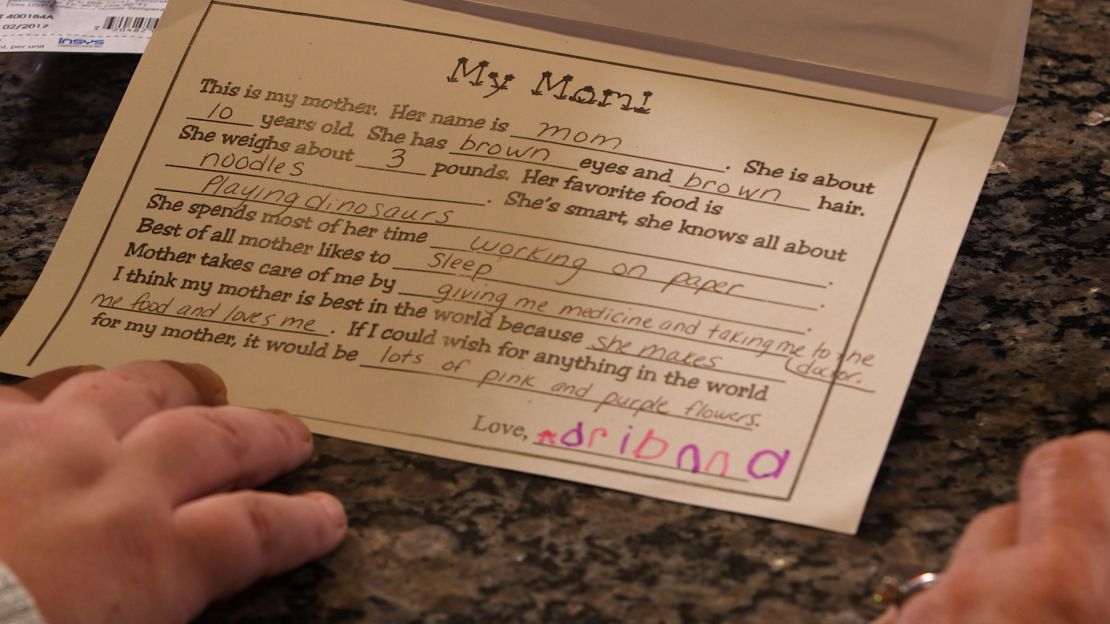 400184A
02/2017
per unit
INSYS
My Mom!
This is my mother. Her name is mom. She is about
10 years old. She has brown eyes and brown hair.
She weighs about 3 pounds. Her favorite food is
noodles. She's smart, she knows all about
Playing dinosaurs
She spends most of her time working on paper.
Best of all mother likes to Sleep.
Mother takes care of me by giving me medicine and taking me to the doctor.
I think my mother is best in the world because she makes
me food and loves me. If I could wish for anything in the world
for my mother, it would be lots of pink and purple flowers.
Love, Adribana